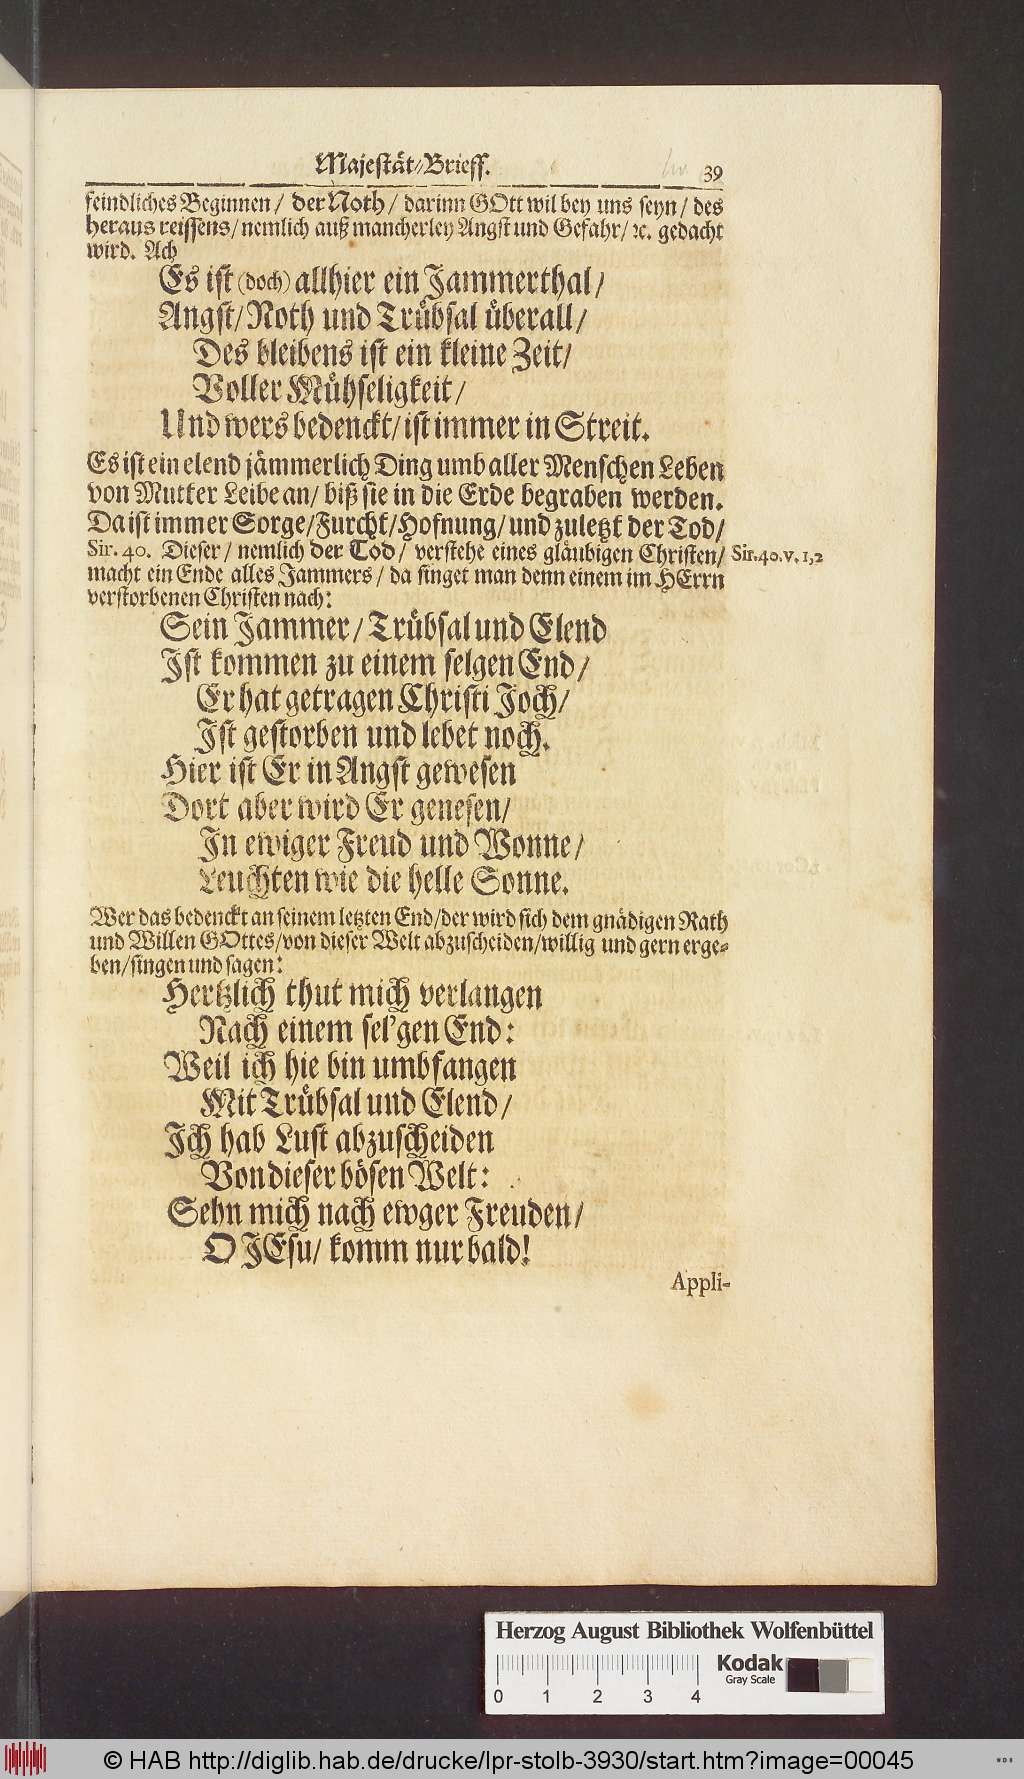 Majestät-Brieff. 39
feindliches Beginnen / der Noth / darinn GOtt wil bey uns seyn / des
heraus reissens / nemlich auß mancherley Angst und Gefahr / ꝛc. gedacht
wird. Ach
Es ist (doch) allhier ein Jammerthal /
Angst / Noth und Trübsal überall /
Des bleibens ist ein kleine Zeit /
Voller Mühseligkeit /
Und wers bedenckt / ist immer in Streit.
Es ist ein elend jämmerlich Ding umb aller Menschen Leben
von Mutter Leibe an / biß sie in die Erde begraben werden.
Da ist immer Sorge / Furcht / Hofnung / und zuletzt der Tod /
Sir. 40. Dieser / nemlich der Tod / verstehe eines gläubigen Christen / Sir. 40. v. 1, 2
macht ein Ende alles Jammers / da singet man denn einem im HErrn
verstorbenen Christen nach:
Sein Jammer / Trübsal und Elend
Ist kommen zu einem selgen End /
Er hat getragen Christi Joch /
Ist gestorben und lebet noch.
Hier ist Er in Angst gewesen
Dort aber wird Er genesen /
In ewiger Freud und Wonne /
Leuchten wie die helle Sonne.
Wer das bedenckt an seinem letzten End / der wird sich dem gnädigen Rath
und Willen GOttes / von dieser Welt abzuscheiden / willig und gern erge-
ben / singen und sagen:
Hertzlich thut mich verlangen
Nach einem sel'gen End:
Weil ich hie bin umbfangen
Mit Trübsal und Elend /
Ich hab Lust abzuscheiden
Von dieser bösen Welt:
Sehn mich nach ewger Freuden /
O JEsu / komm nur bald!
Appli-
Herzog August Bibliothek Wolfenbüttel
Kodak
Gray Scale
0 1 2 3 4
© HAB http://diglib.hab.de/drucke/lpr-stolb-3930/start.htm?image=00045